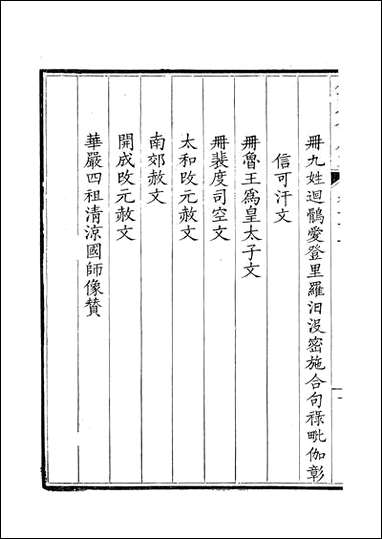 冊九姓迴鶻愛登里羅汨沒密施合句祿毗伽彰
信可汗文
冊魯王爲皇太子文
冊裴度司空文
太和改元赦文
南郊赦文
開成改元赦文
華嚴四祖清涼國師像贊